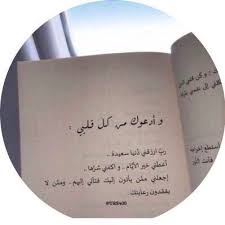 و أدعوك من كل قلبي :
ربّ ارزقني دُنيا سعيدة ..
أعطني خير الأيّام .. و اكفني شرّها ..
اجعلني ممّن يأتون إليك فتأتي إليهم .. وممّن لا
يفقدون رعايتك .